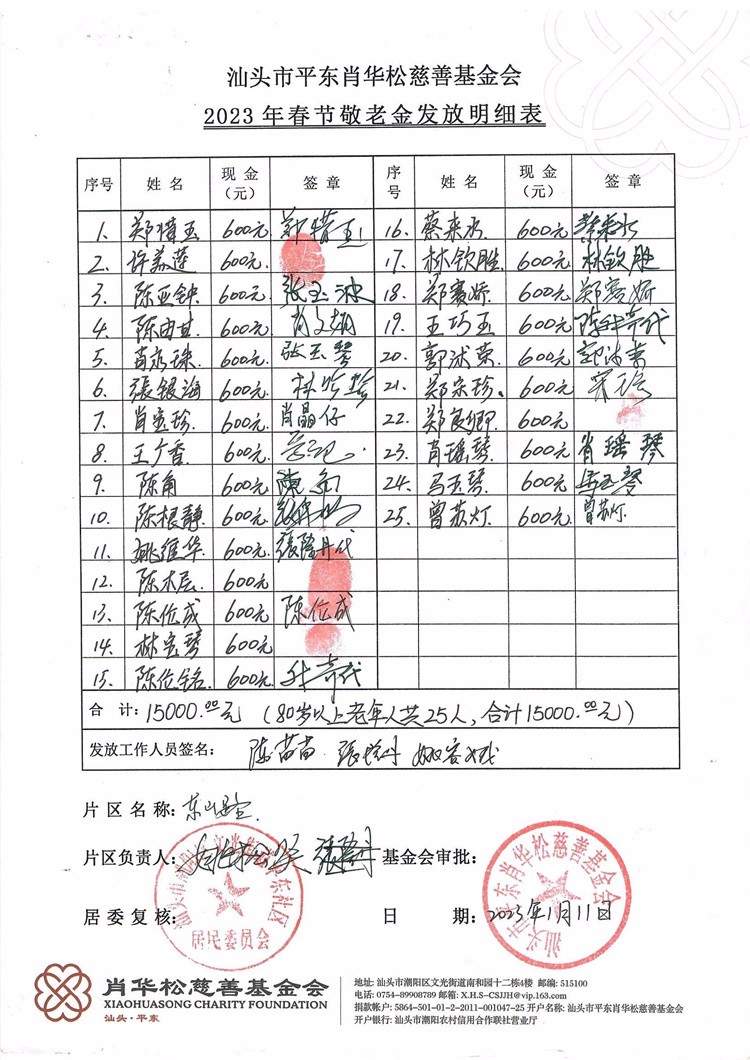 汕头市平东肖华松慈善基金会
2023年春节敬老金发放明细表
序号 姓名 现金(元) 签章 序号 姓名 现金(元) 签章
1. 郑惜玉 600元 郑惜玉 16. 蔡来水 600元 蔡来水
2. 许美莲 600元 17. 林钦胜 600元 林钦胜
3. 陈亚钟 600元 18. 郑赛娇 600元 郑赛娇
4. 陈由其 600元 19. 王巧玉 600元
5. 肖永珠 600元 张玉琴 20. 郭沭荣 600元
6. 張银海 600元 21. 郑宗珍 600元
7. 肖宝珍 600元 肖晶仔 22. 郑良卿 600元
8. 王广香 600元 23. 肖瑶琴 600元 肖瑶琴
9. 陈角 600元 24. 马玉琴 600元 马玉琴
10. 陈根静 600元 25. 曾苏灯 600元 曾苏灯
11. 姚维华 600元
12. 陈木层 600元
13. 陈位成 600元 陈位成
14. 林宝琴 600元
15. 陈位铭 600元
合计: 15000.00元 (80岁以上老年人共25人, 合计15000.00元)
发放工作人员签名:
片区名称:
片区负责人: 基金会审批:
居委复核: 日期: 2023年1月11日
居民委员会
汕头市平东肖华松慈善基金会
肖华松慈善基金会
XIAOHUASONG CHARITY FOUNDATION
汕头·平东
地址: 汕头市潮阳区文光街道南和园十二栋4楼 邮编: 515100
电话: 0754-89908789 邮箱: X.H.S-CSJJH@vip.163.com
捐款帐户: 5864-501-01-2-2011-001047-25 开户名称: 汕头市平东肖华松慈善基金会
开户银行: 汕头市潮阳农村信用合作联社营业厅